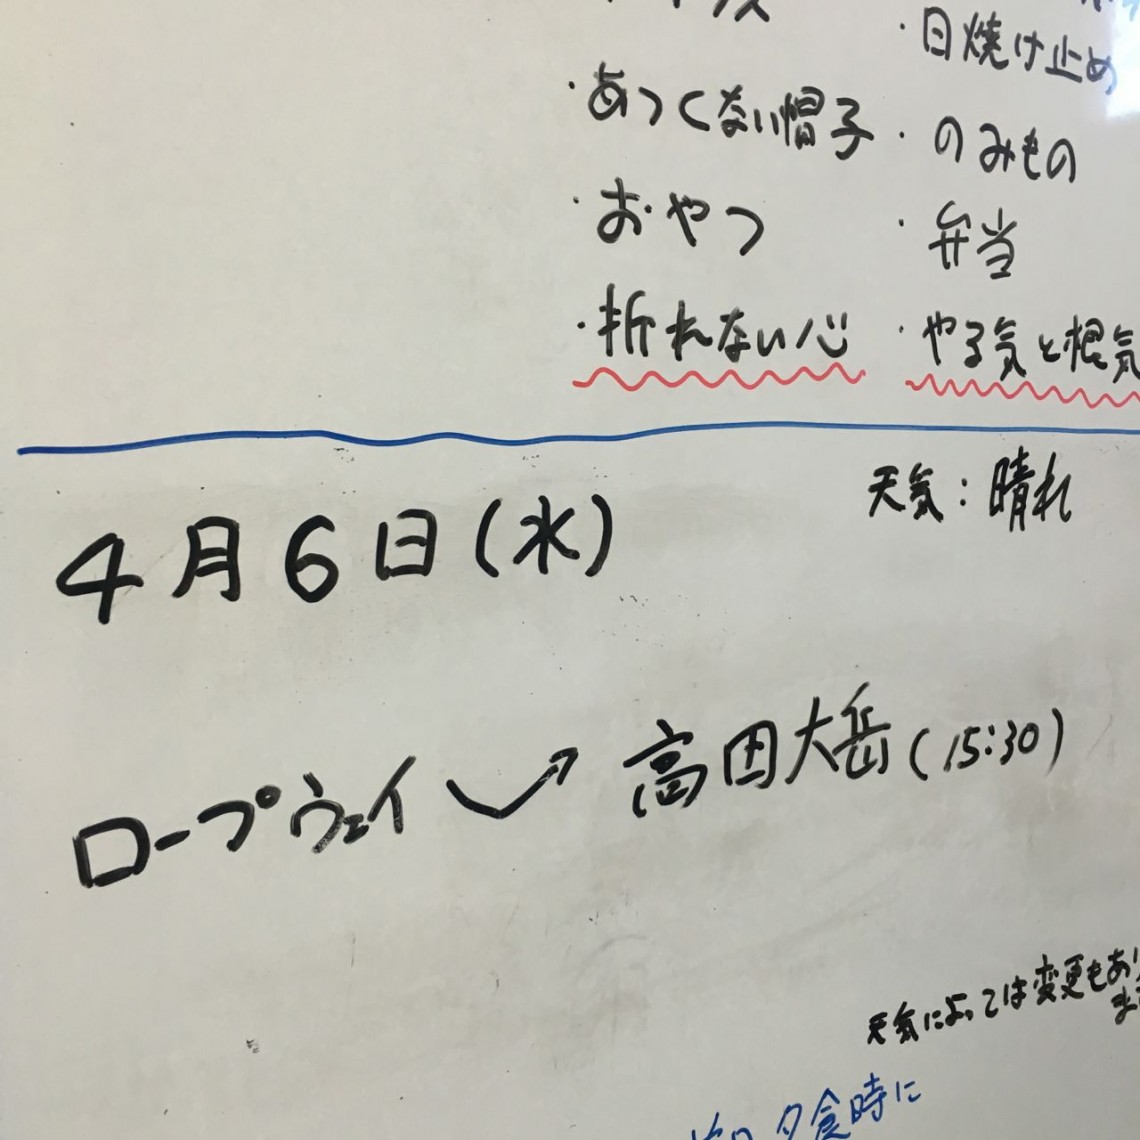 ・日焼け止め
・あつくない帽子
・のみもの
・おやつ
・弁当
・折れない心
・やる気と根気
天気：晴れ
4月6日(水)
ロープウェイ
高田大岳(15:30)
天気によっては変更もあり
夕食時に